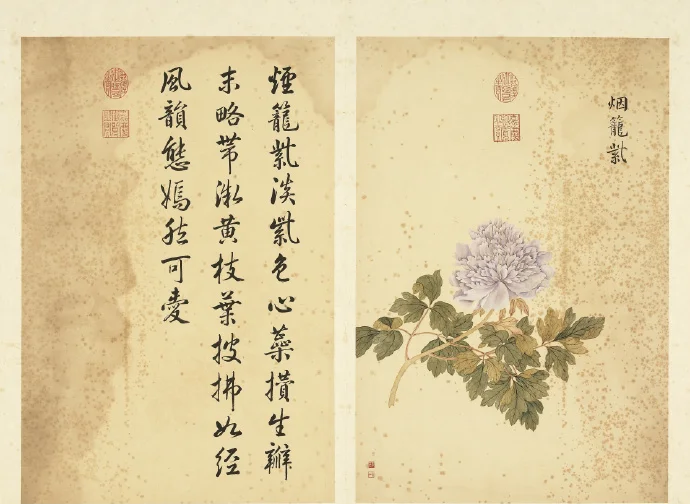 烟籠紫
煙籠紫淡紫色心蘂攢生瓣
末略帶激黄枝葉披拂如經
風韻態嫣然可愛